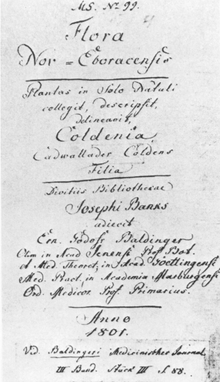 MS. No 99.
Flora
Nov=Eboracensis
Plantas in Solo Natali
collegit, descripsit,
delineavit,
Coldenia
Cadwallader Coldens
Filia
Divitiis Bibliothecae
Josephi Banks
adiecit
Ern. Godofr Baldinger
Olim in Acad Jenensi Prof Bot.
et Med Theoret, in Acad Goettingensi
Med. Pract. in Academia Marburgensi
Ord. Medicor Prof Primarius.
Anno
1801.
Vid Baldingeri Medicinisches Journal
III Band. Stück III S. 88.